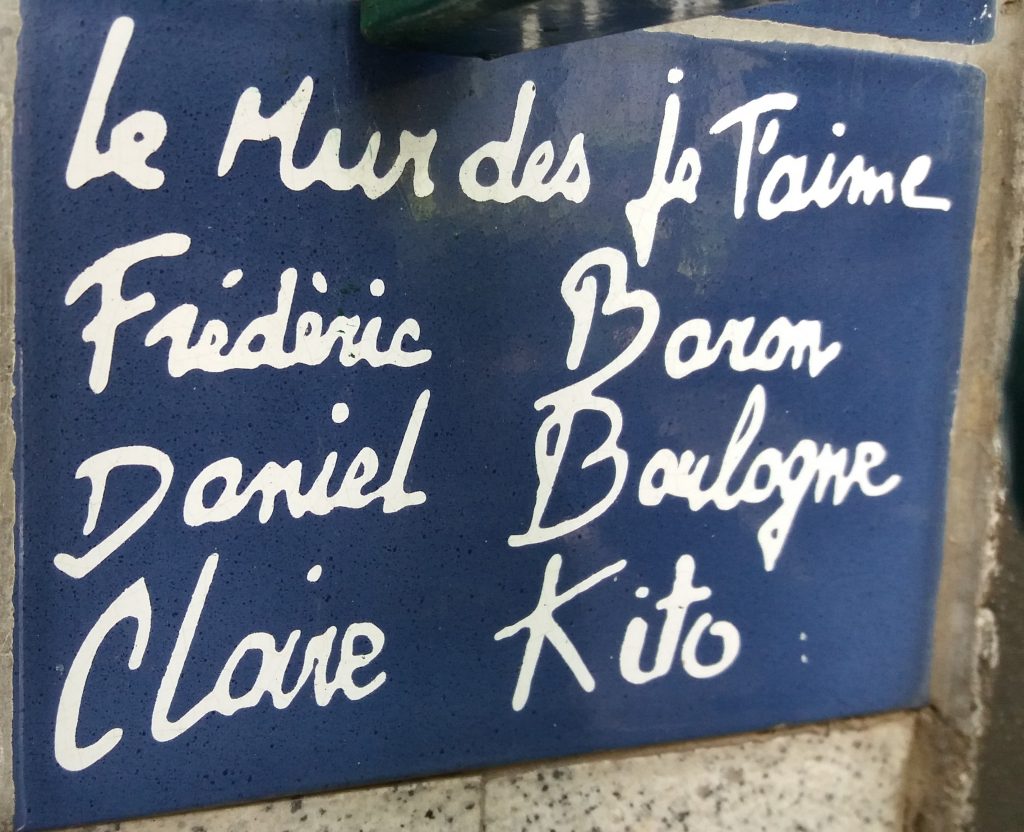 Le Mur des je T'aime
Frédéric Baron
Daniel Boulogne
Claire Kito